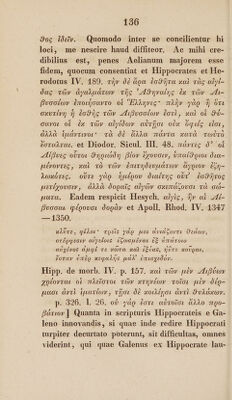 136
θος ἰδεῖν. Quomodo inter se concilientur hi
loci, me nescire haud diffiteor. Ac mihi cre-
dibilius est, penes Aelianum majorem esse
fidem, quocum consentiat et Hippocrates et He-
rodotus IV. 189. τὴν δὲ ἄρα ἐσθῆτα καὶ τὰς αἰγί-
δας τῶν ἀγαλμάτων τῆς Ἀθηναίης ἐκ τῶν Λι-
βυσσέων ἐποιήσαντο οἱ Ἕλληνες· πλὴν γὰρ ἢ ὅτι
σκυτίνη ἡ ἐσθὴς τῶν Λιβυσσέων ἐστί, καὶ οἱ θύ-
σανοι οἱ ἐκ τῶν αἰγίδων αὐτῇσι οὐκ ὄφιές εἰσι,
ἀλλὰ ἱμάντινοι· τὰ δὲ ἄλλα πάντα κατὰ τωὐτὸ
ἔσταλται. et Diodor. Sicul. III. 48. πάντες δ' οἱ
Λίβυες οὗτοι θηριώδη βίον ἔχουσιν, ὑπαίθριοι δια-
μένοντες, καὶ τὸ τῶν ἐπιτηδευμάτων ἄγριον ἐζη-
λωκότες. οὔτε γὰρ ἡμέρου διαίτης οὔτ' ἐσθῆτος
μετέχουσιν, ἀλλὰ δοραῖς αἰγῶν σκεπάζουσι τὰ σώ-
ματα. Eadem respicit Hesych. αἰγὶς, ἣν αἱ Λί-
βυσσαι φέρουσι δορὰν et Apoll. Rhod. IV. 1347
—1350.
κλῦτε, φίλοι· τρεῖς γάρ μοι ἀνιάζοντι θεάων,
στέρφεσιν αἰγείοις ἐζωσμέναι ἐξ ὑπάτοιο
αὐχένος ἀμφί τε νῶτα καὶ ἰξύας, ἠΰτε κοῦραι,
ἔσταν ὑπὲρ κεφαλῆς μάλ' ἐπισχεδόν.
Hipp. de morb. IV. p. 157. καὶ τῶν μὲν Λιβύων
χρέονται οἱ πλεῖστοι τῶν κτηνέων τοῖσι μὲν δέρ-
μασι ἀντὶ ἱματίων, τῇσι δὲ κοιλίῃσι ἀντὶ θυλάκων.
p. 326. l. 26. οὐ γάρ ἐστι αὐτοῖσι ἄλλο προ-
βάτιον] Quanta in scripturis Hippocrateis e Ga-
leno innovandis, si quae inde redire Hippocrati
turpiter decurtato poterunt, sit difficultas, omnes
viderint, qui quae Galenus ex Hippocrate lau-